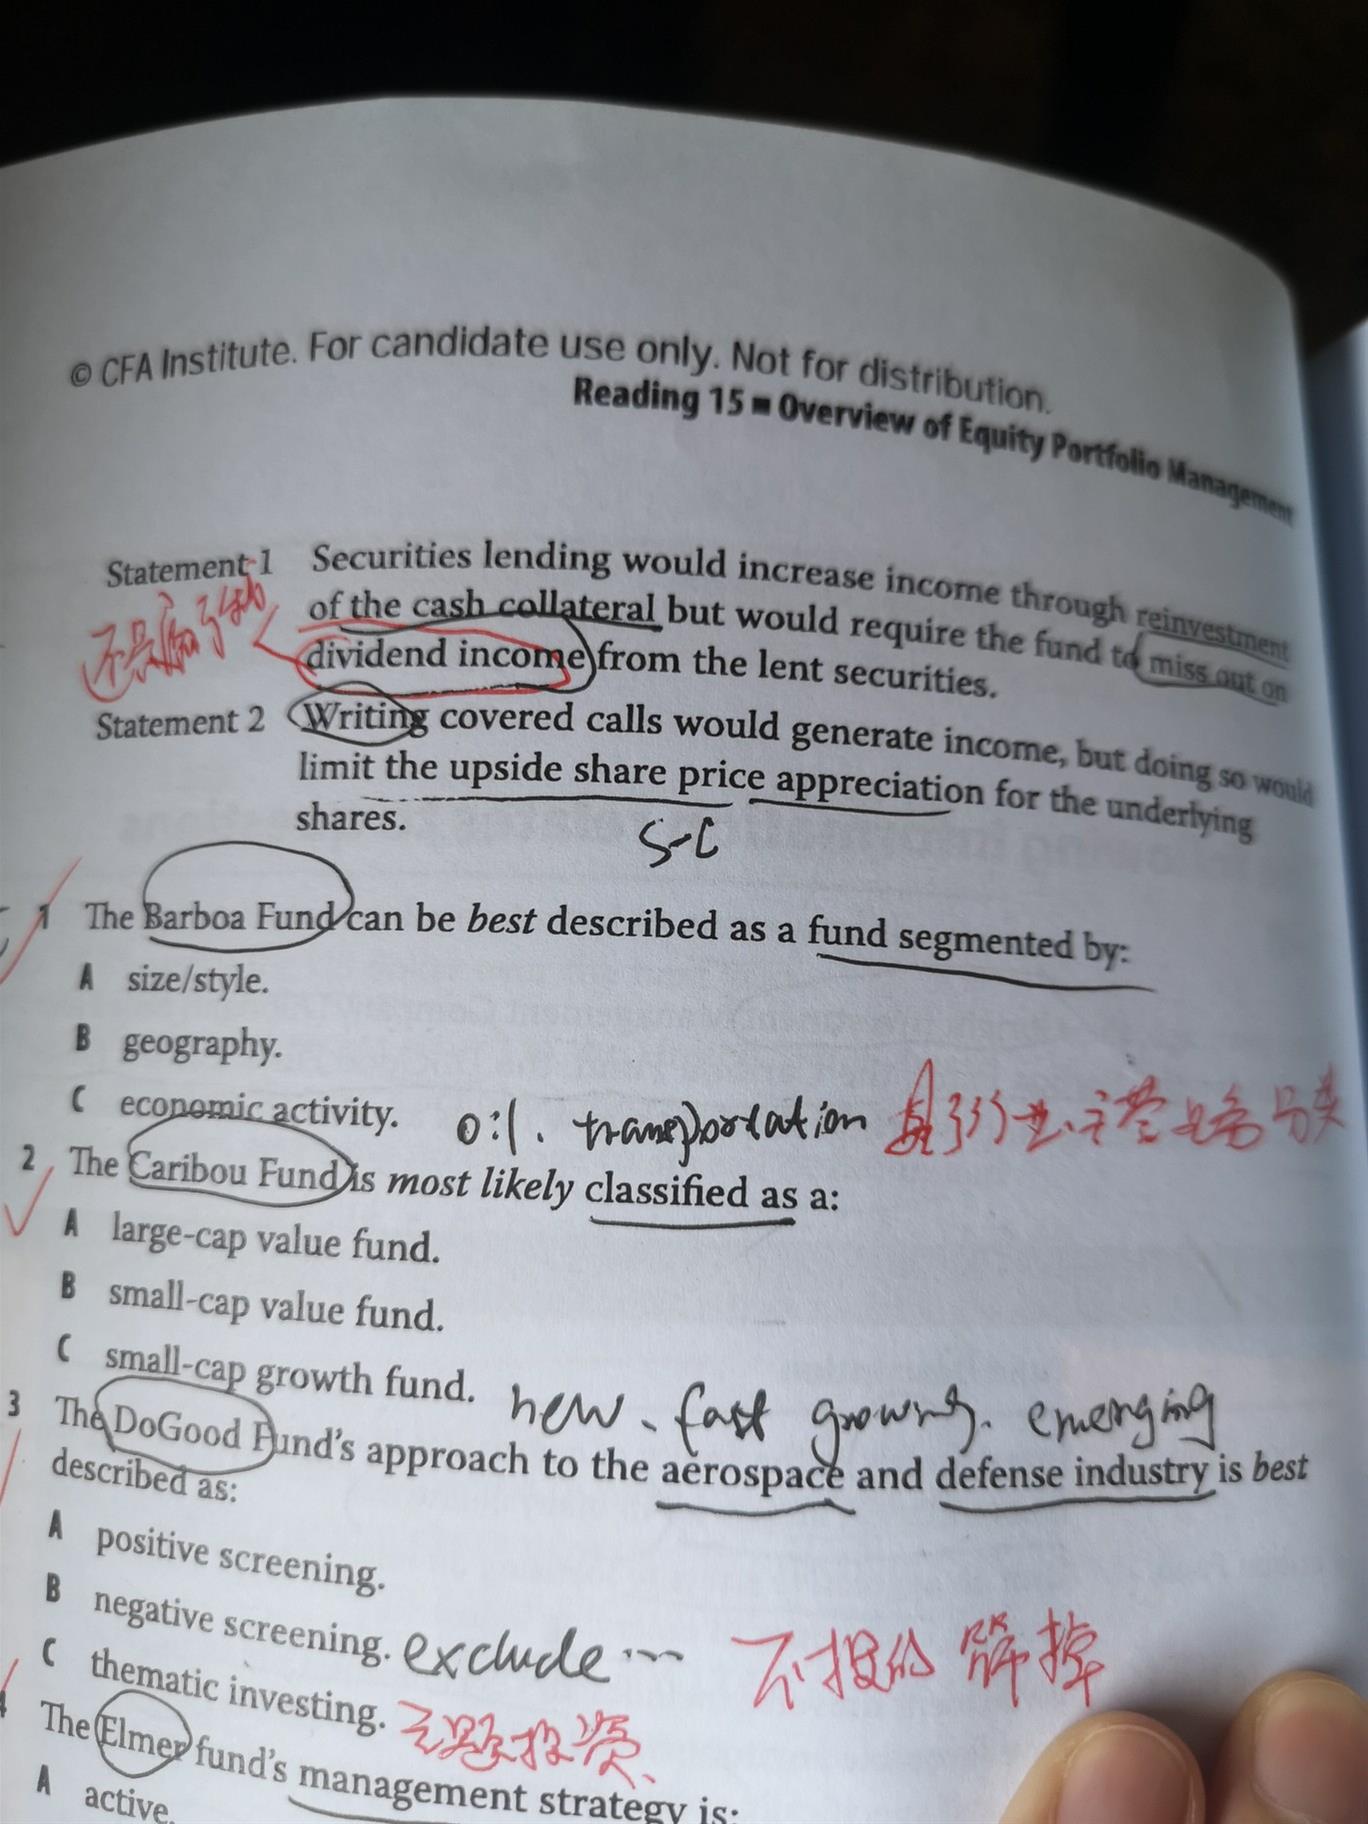 © CFA Institute. For candidate use only. Not for distribution.
Reading 15 ■ Overview of Equity Portfolio Management
Statement 1 Securities lending would increase income through reinvestment
of the cash collateral but would require the fund to miss out on
dividend income from the lent securities.
Statement 2 Writing covered calls would generate income, but doing so would
limit the upside share price appreciation for the underlying
shares.
S-C
1 The Barboa Fund can be best described as a fund segmented by:
A size/style.
B geography.
C economic activity. oil. transportation
2 The Caribou Fund is most likely classified as a:
A large-cap value fund.
B small-cap value fund.
C small-cap growth fund. new、fast growing. emerging
3 The DoGood Fund's approach to the aerospace and defense industry is best
described as:
A positive screening.
B negative screening. exclude ... 不投的 筛掉
C thematic investing. 主题投资
4 The Elmer fund's management strategy is:
A active.